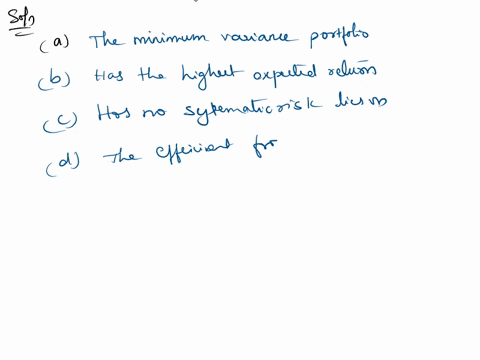 Soln
(a) The minimum variance portfolio
(b) Has the highest expected return
(c) Has no systematic risk lies on
(d) The efficient fro